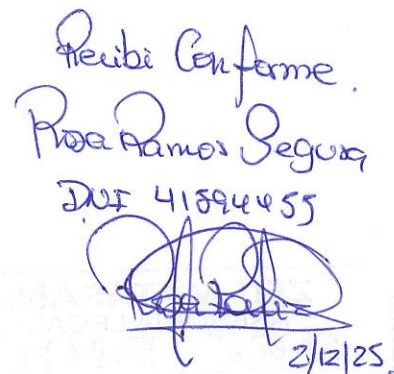 Recibi Conforme.
Rosa Ramos Segura
DNI 41894455
Rosa Ramos
2/12/25.